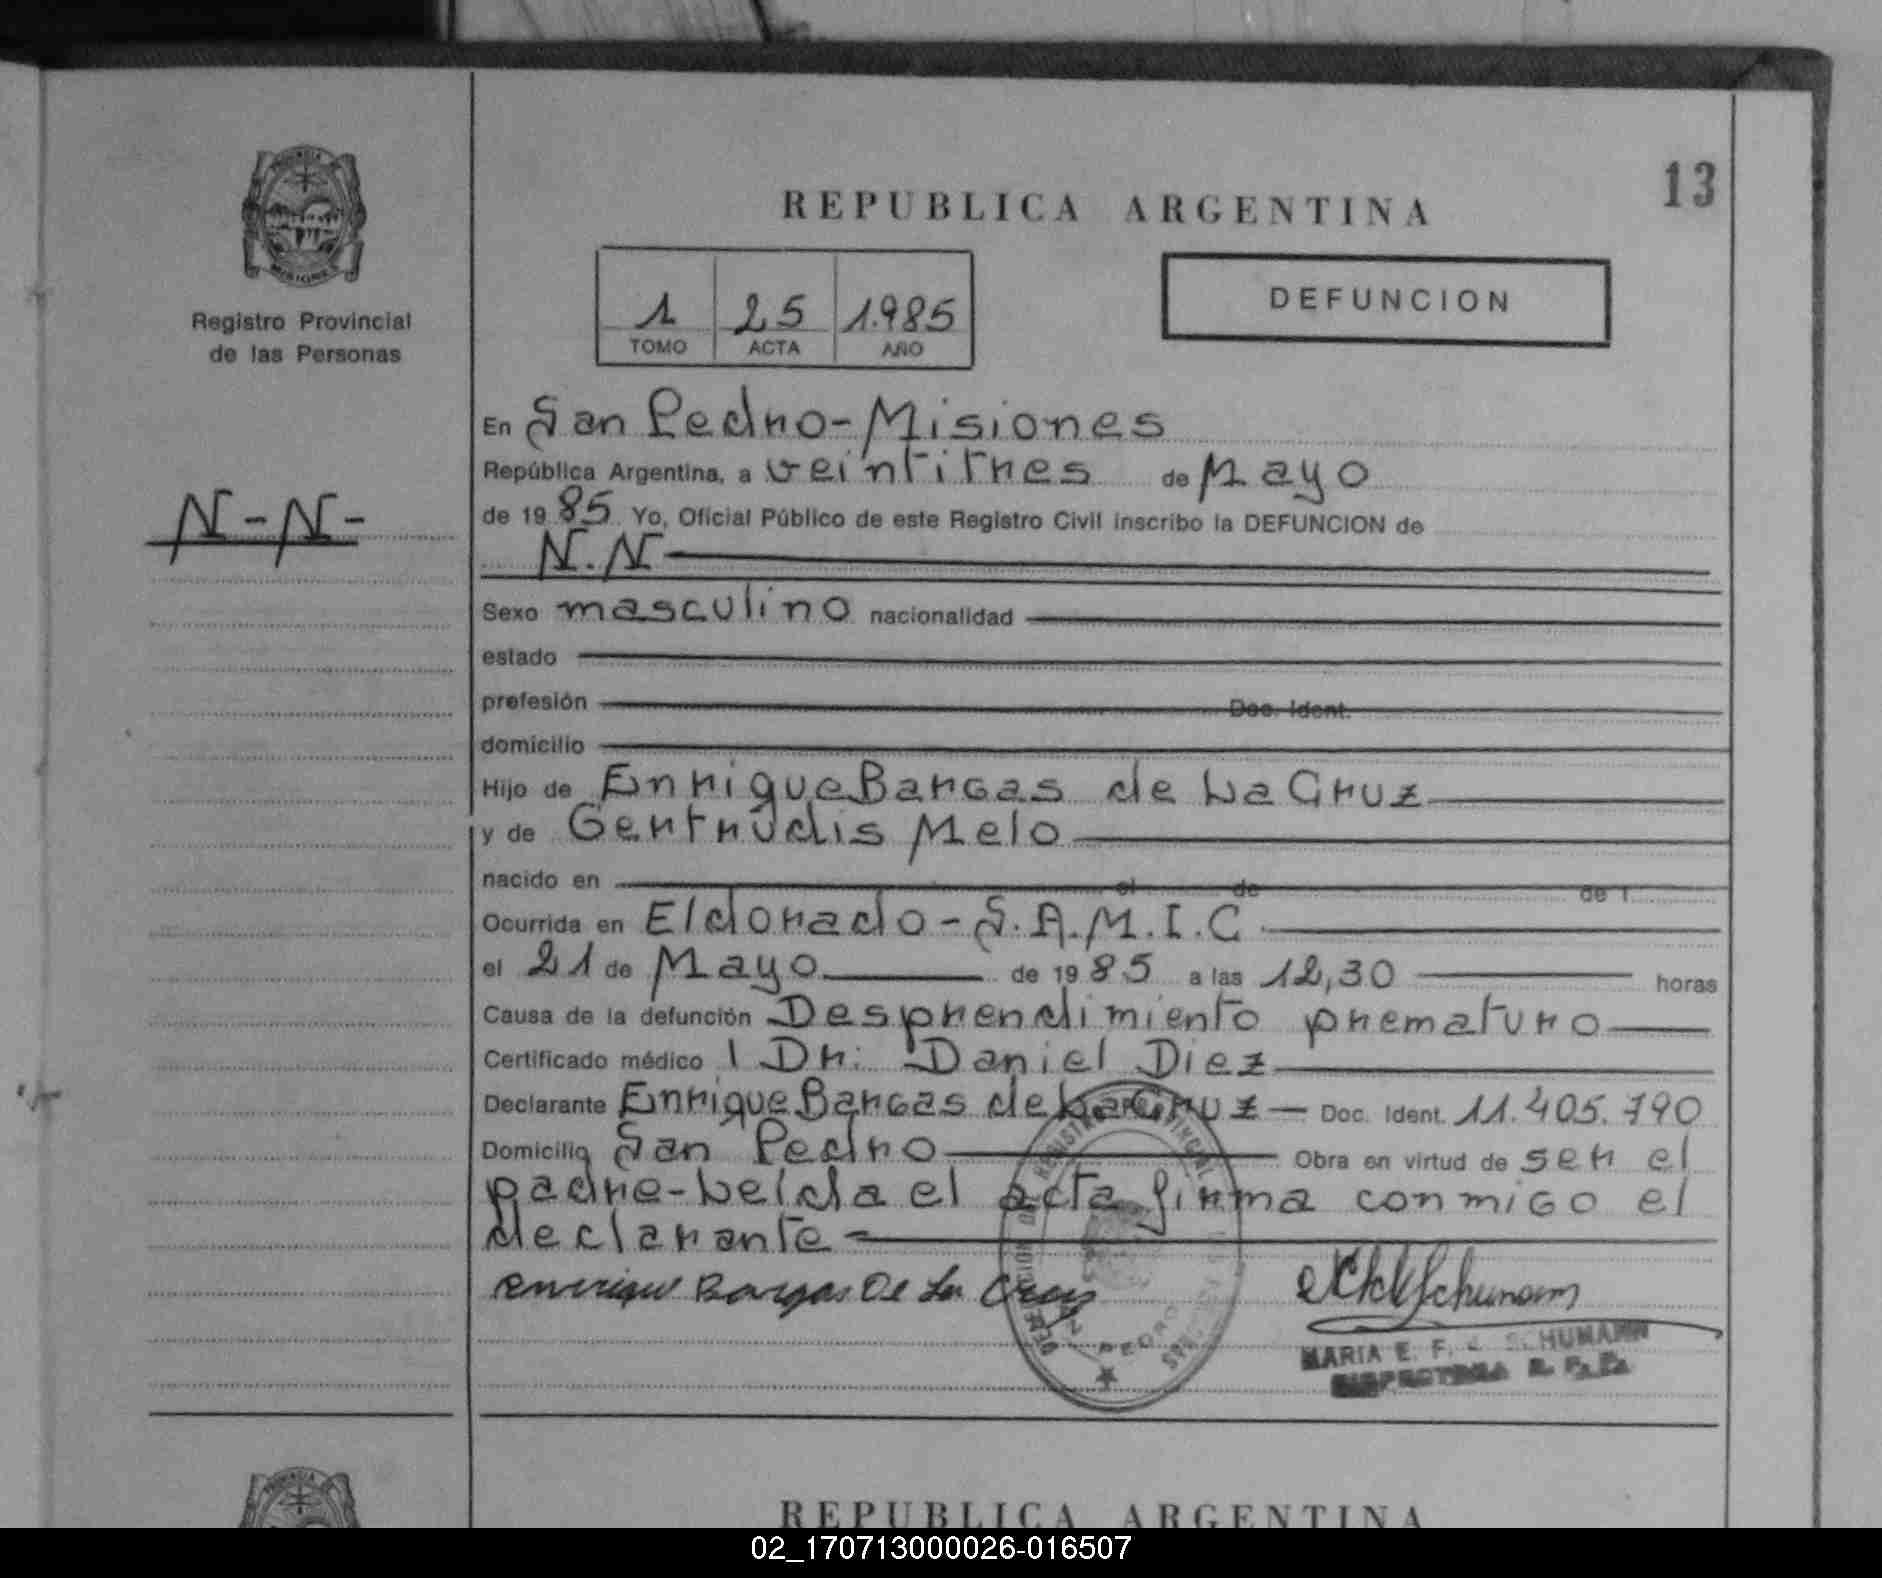 13
REPUBLICA ARGENTINA
Registro Provincial
de las Personas
1 25 1.985
TOMO ACTA AÑO
DEFUNCION
N-N-
En San Pedro-Misiones
República Argentina, a veintitres de Mayo
de 1985 Yo, Oficial Público de este Registro Civil inscribo la DEFUNCION de
N.N
Sexo masculino nacionalidad
estado
prefesión Doc. Ident.
domicilio
Hijo de Enrique Bargas de La Cruz
y de Gertrudis Melo
nacido en el de de 1
Ocurrida en Eldorado-S.A.M.I.C
el 21 de Mayo de 1985 a las 12,30 horas
Causa de la defunción Desprendimiento prematuro
Certificado médico Dr: Daniel Diez
Declarante Enrique Bargas de La Cruz Doc. Ident. 11.405.790
Domicilio San Pedro Obra en virtud de ser el
padre-Leida el acta firma conmigo el
declarante
Enrrique Bargas De La Cruz
MARIA E. F. SCHUMANN
PEDRO
REPUBLICA ARGENTINA
02_170713000026-016507